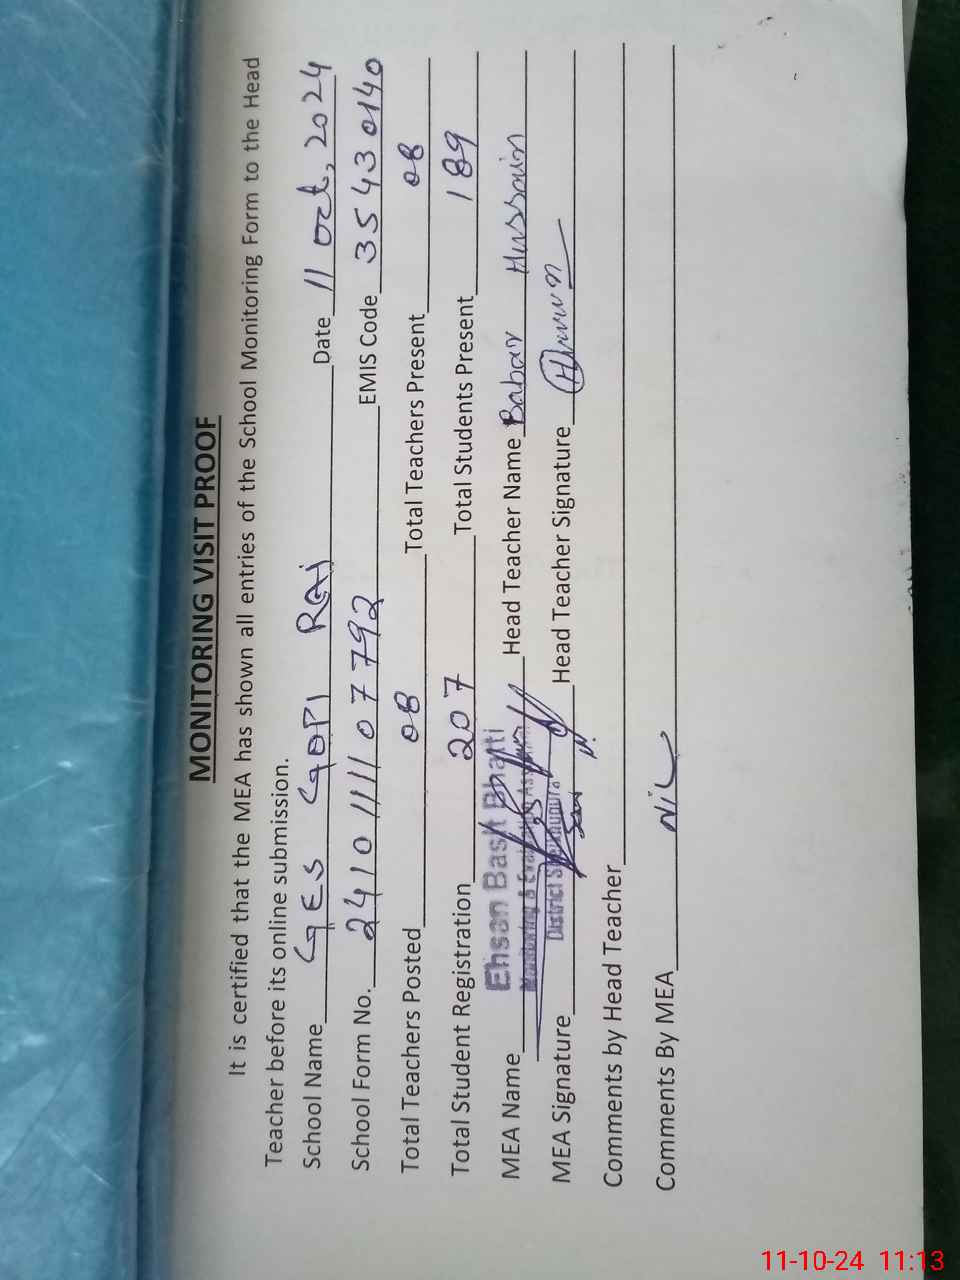 MONITORING VISIT PROOF
It is certified that the MEA has shown all entries of the School Monitoring Form to the Head
Teacher before its online submission.
School Name GES GOPI RAI Date 11 Oct, 2024
School Form No. 2410111107792 EMIS Code 35430140
Total Teachers Posted 08 Total Teachers Present 08
Total Student Registration 207 Total Students Present 189
MEA Name Ehsan Basit Bhatti Head Teacher Name Babar Hussain
Monitoring & Evaluation Assistant
MEA Signature District Sheikhupura Head Teacher Signature
Comments by Head Teacher
Comments By MEA Nil
11-10-24 11:13